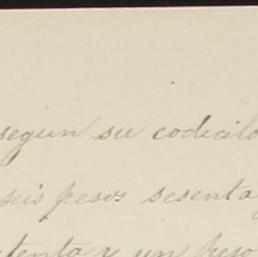 segun su codicilo
seis pesos sesenta
tenta y un peso